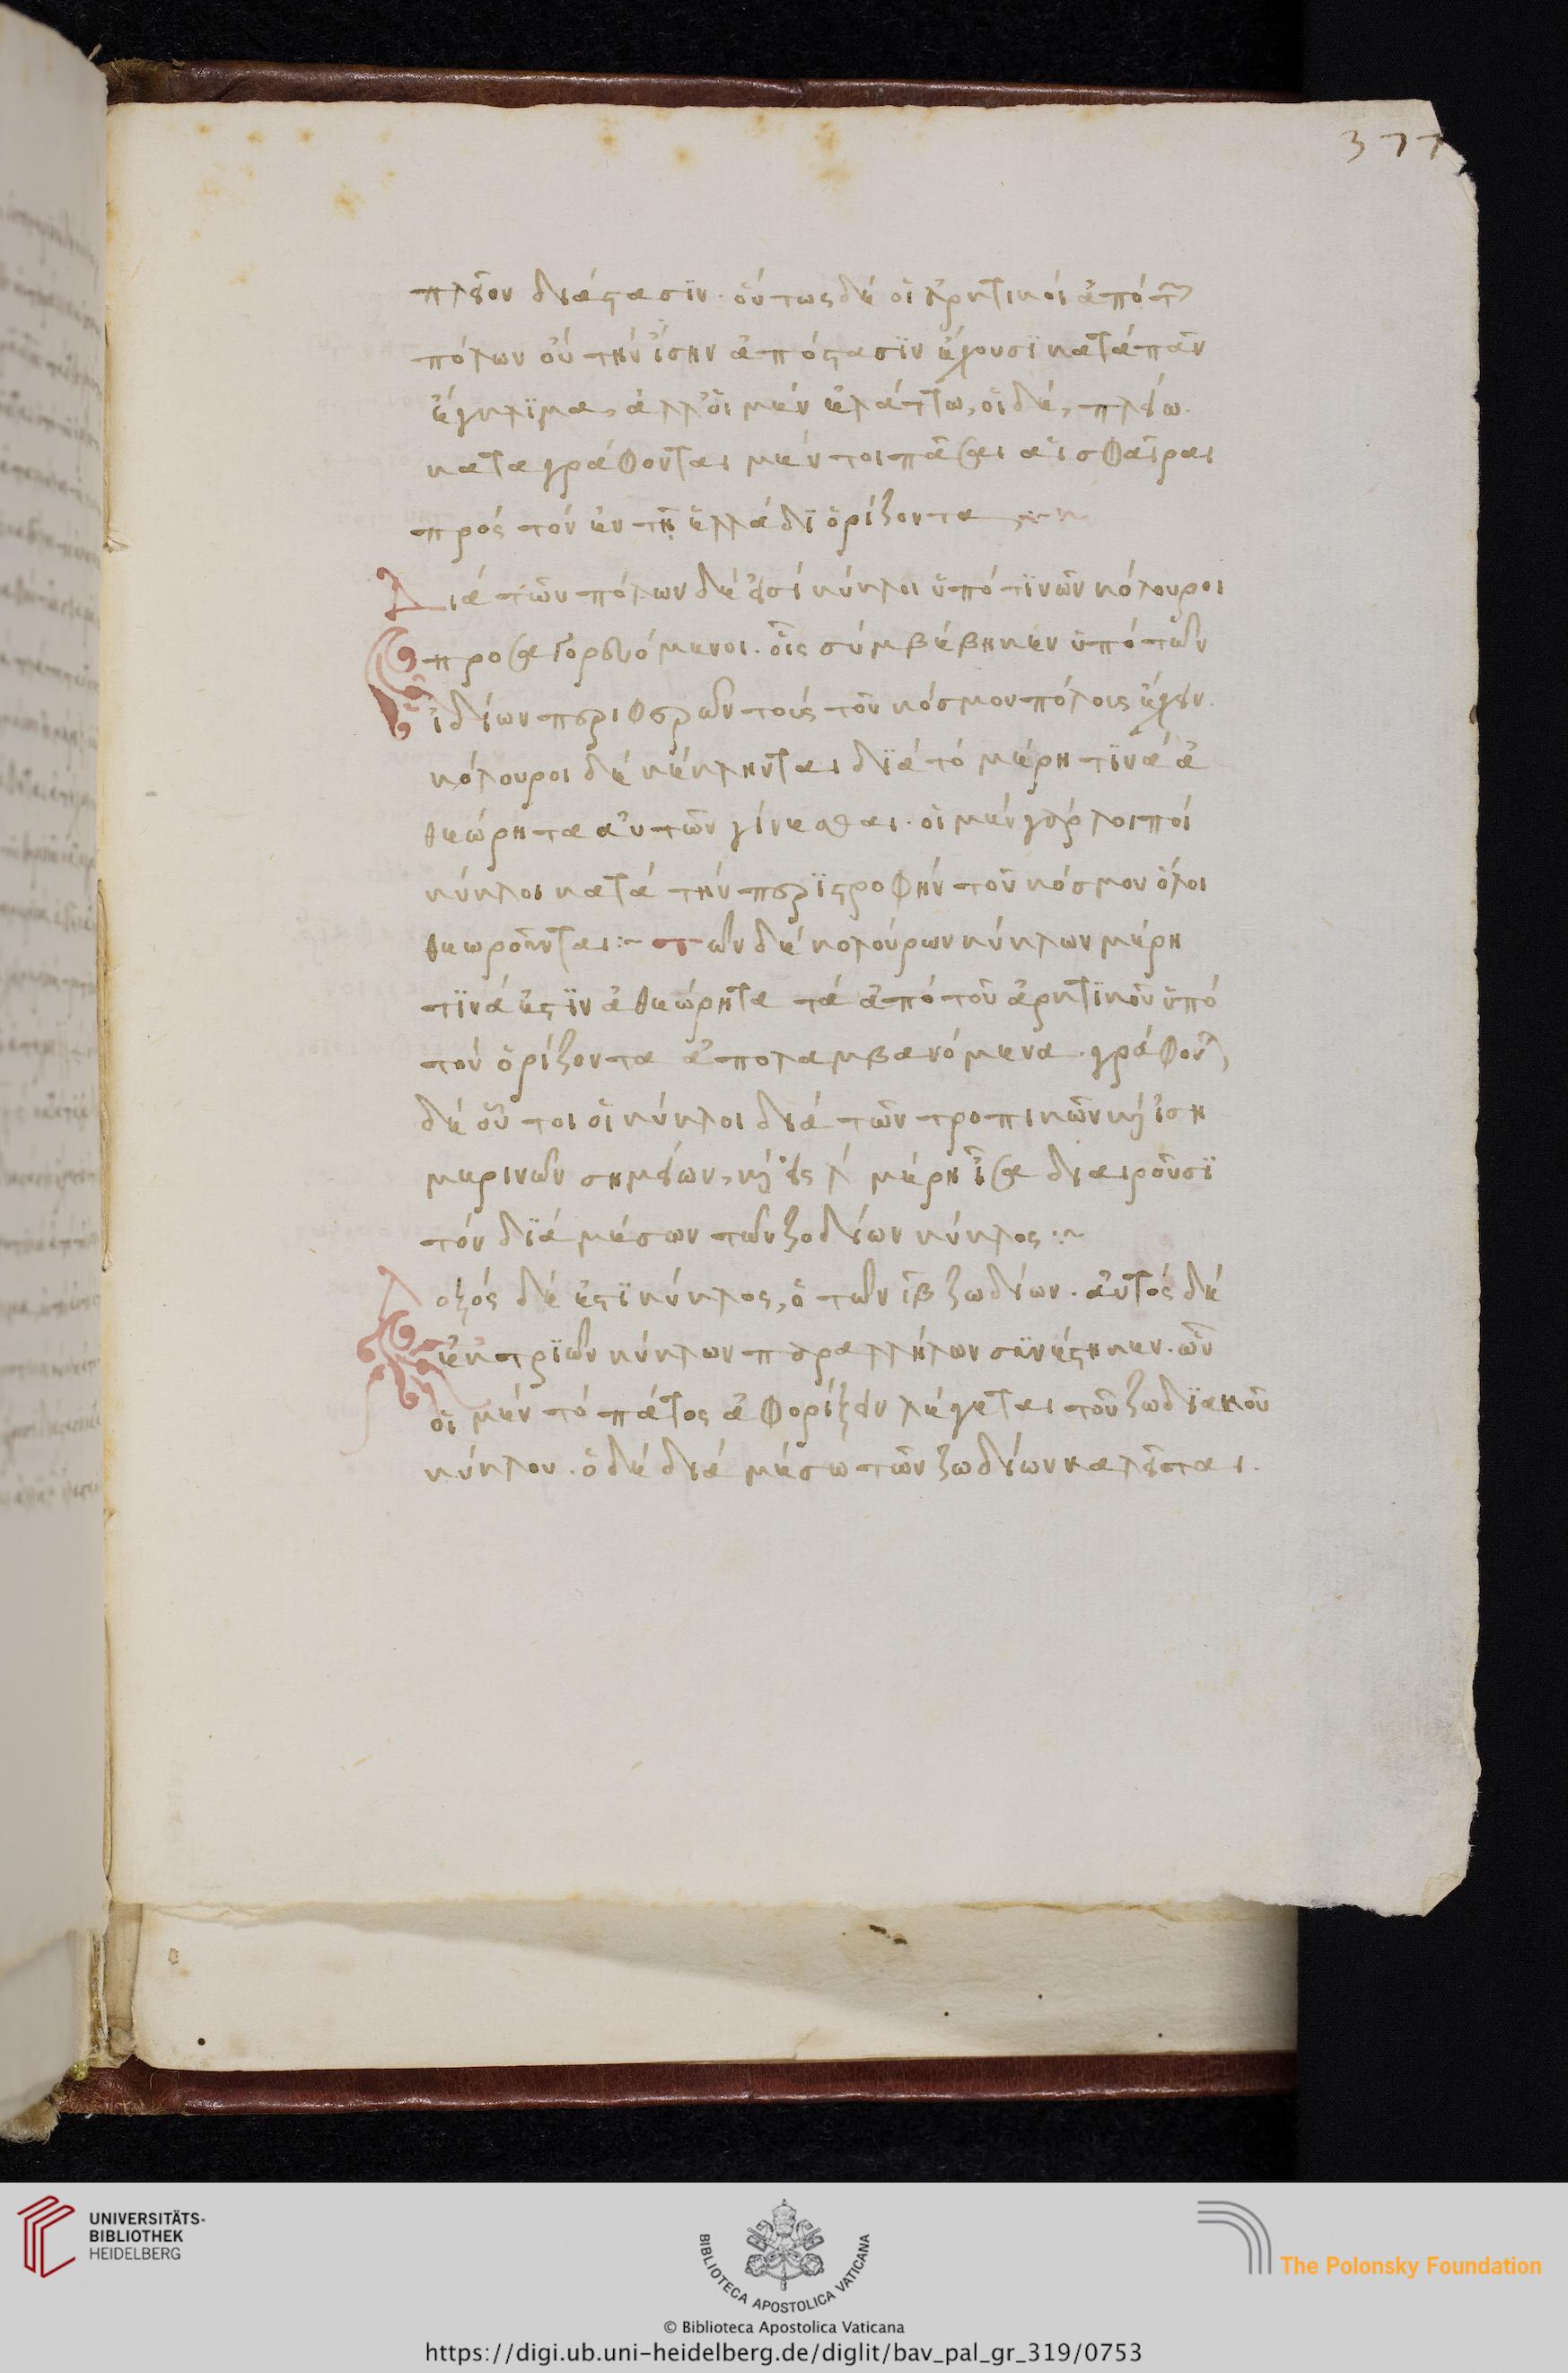 377
πλεῖον διάστασιν. οὕτως δέ οἱ ἀρκτικοὶ ἀπὸ τῶν
πόλων οὐ τὴν ἴσην ἀπόστασϊν ἔχουσϊ κατάπᾶν
ἔγκλϊμα, ἀλλ' οἱ μὲν ἐλάττω, οἱ δὲ, πλείω.
καταγράφονται μέν τοι πᾶσαι αἱ σφαῖραι
πρὸς τὸν ἐν τῇ ἑλλάδϊ ὁρίζοντα
Διὰ τῶν πόλων δέ εἰσὶ κύκλοι ὑπό τϊνῶν κόλουροι
προσαγορευόμενοι. οἷς συμβέβηκεν ὑπὸ τῶν
ἰδίων περιφερῶν τοὺς τοῦ κόσμου πόλους ἔχειν.
κόλουροι δὲ κέκληνται δϊὰ τὸ μέρη τϊνὰ ἀ
θεώρητα αὐτῶν γίνεσθαι. οἱ μὲν γὰρ λοιποὶ
κύκλοι κατὰ τὴν περϊστροφὴν τοῦ κόσμου ὅλοι
θεωροῦνται:~ τῶν δὲ κολούρων κύκλων μέρη
τϊνά ἐστϊν ἀθεώρητα τὰ ἀπὸ τοῦ ἀρκτϊκοῦ ὑπὸ
τὸν ὁρίζοντα ἀπολαμβανόμενα. γράφονται
δὲ οὗτοι οἱ κύκλοι διὰ τῶν τροπικῶν καὶ ἰση
μερινῶν σημείων, καὶ εἰς δ μέρη ἴσα διαιροῦσϊ
τὸν δϊὰ μέσων τῶν ζοδίων κύκλος:~
Λοξὸς δέ ἐστϊ κύκλος, ὁ τῶν ιβ ζωδίων. αὐτὸς δὲ
ἐκ τρϊῶν κύκλων παραλλήλων συνέστηκεν. ὧν
οἱ μὲν τὸ πλάτος ἀφορίζειν λέγεται τοῦ ζωδϊακοῦ
κύκλου. ὁ δὲ διὰ μέσω τῶν ζωδίων καλεῖται.
UNIVERSITÄTS-
BIBLIOTHEK
HEIDELBERG
BIBLIOTECA APOSTOLICA VATICANA
The Polonsky Foundation
© Biblioteca Apostolica Vaticana
https://digi.ub.uni-heidelberg.de/diglit/bav_pal_gr_319/0753